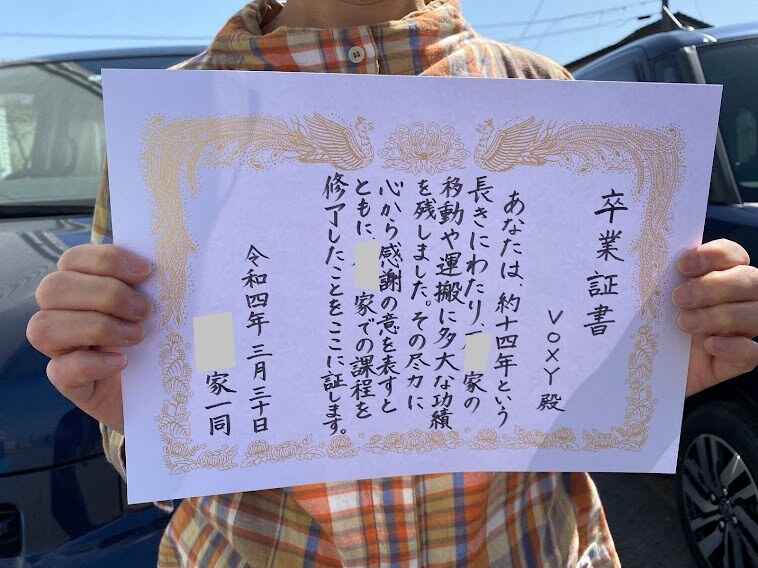 卒業証書
VOXY殿
あなたは、約十四年という
長きにわたり、家の
移動や運搬に多大な功績
を残しました。その尽力に
心から感謝の意を表すと
ともに、家での課程を
修了したことをここに証します。
令和四年 三月三十日
家一同